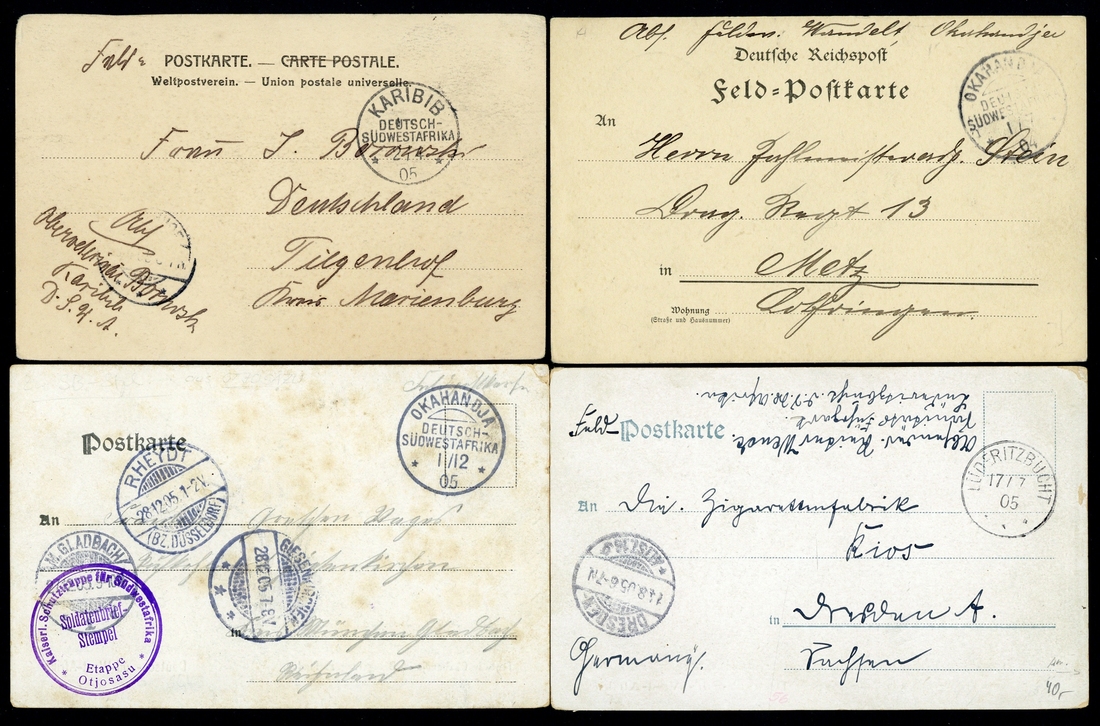 POSTKARTE. — CARTE POSTALE.
Weltpostverein. — Union postale universelle.
KARIBIB
DEUTSCH-
SÜDWESTAFRIKA
05
Frau J. Borowski
Deutschland
Tiegenhof
Kreis Marienburg
Abs
Karibib
D. S. W. A.
Abs. Okahandja
Deutsche Reichspost
Feld=Postkarte
OKAHANDJA
DEUTSCH-
SÜDWESTAFRIKA
An
Herrn Zahlmeisterasp. Stein
Drag. Regt 13
in Metz
Wohnung Lothringen.
(Straße und Hausnummer)
Postkarte
OKAHANDJA
DEUTSCH-
SÜDWESTAFRIKA
1/12
05
RHEYDT
28.12.05.1-2V.
(BZ. DÜSSELDORF)
An
M. GLADBACH
28.12.05.7-8V
in München Gladbach
Rheinland
Kaiserl. Schutztruppe für Südwestafrika
Soldatenbrief-
Stempel
Etappe
Otjosasu
Feld- Postkarte
LÜDERITZBUCHT
17/7
05
An Die Zigarettenfabrik
Kios
DRESDEN ALTST.
14.8.05.6-7N.
in Dresden A.
Sachsen
Germany.
40,-